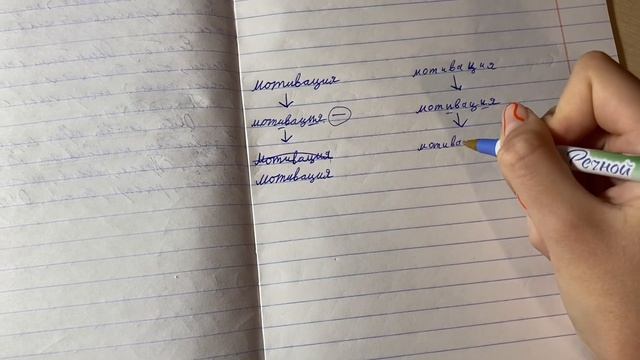 мотивация
мотивация
мотивация
мотивация
мотивация
мотивация
мотива
Речной